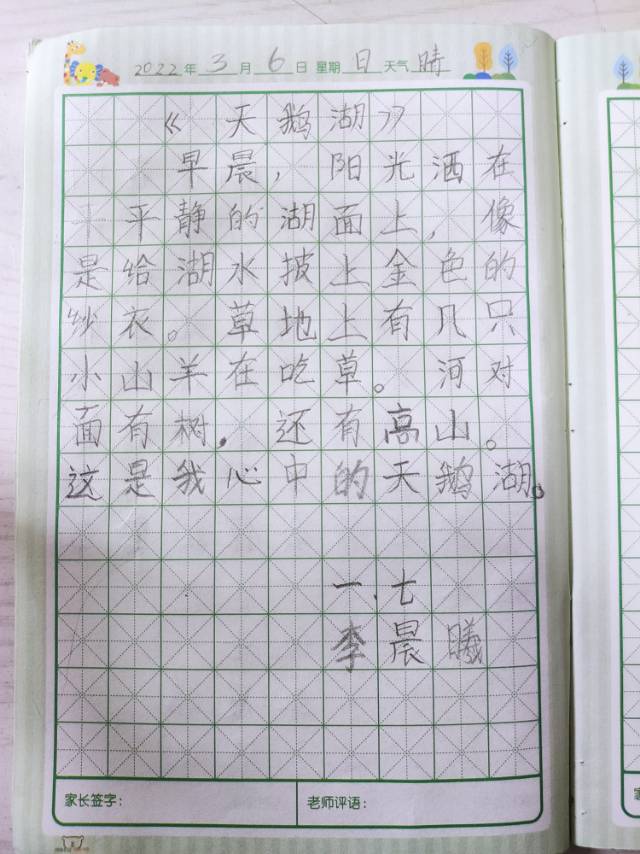 2022年3月6日 星期日 天气晴
《天鹅湖》
早晨，阳光洒在
平静的湖面上，像
是给湖水披上金色的
纱衣。草地上有几只
小山羊在吃草。河对
面有树，还有高山。
这是我心中的天鹅湖。
一.七
李晨曦
家长签字：
老师评语：